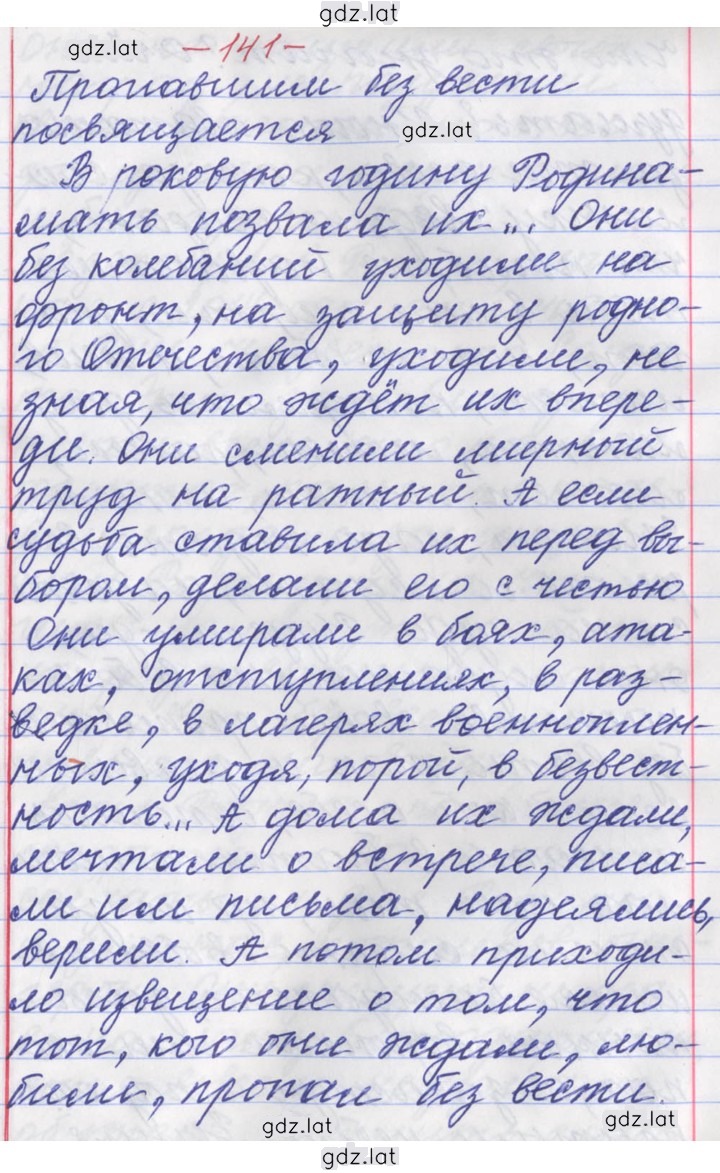 gdz.lat
gdz.lat
- 141 -
Пропавшим без вести
посвящается
gdz.lat
В роковую годину Родина-
мать позвала их... Они
без колебаний уходили на
фронт, на защиту родно-
го Отечества, уходили, не
зная, что ждёт их впере-
ди. Они сменили мирный
труд на ратный. А если
судьба ставила их перед вы-
бором, делали его с честью
Они умирали в боях, ата-
ках, отступлениях, в раз-
ведке, в лагерях военноплен-
ных, уходя, порой, в безвест-
ность... А дома их ждали,
мечтали о встрече, писа-
ли им письма, надеялись,
верили. А потом приходи-
ло извещение о том, что
тот, кого они ждали, лю-
били, пропал без вести.
gdz.lat
gdz.lat
gdz.lat